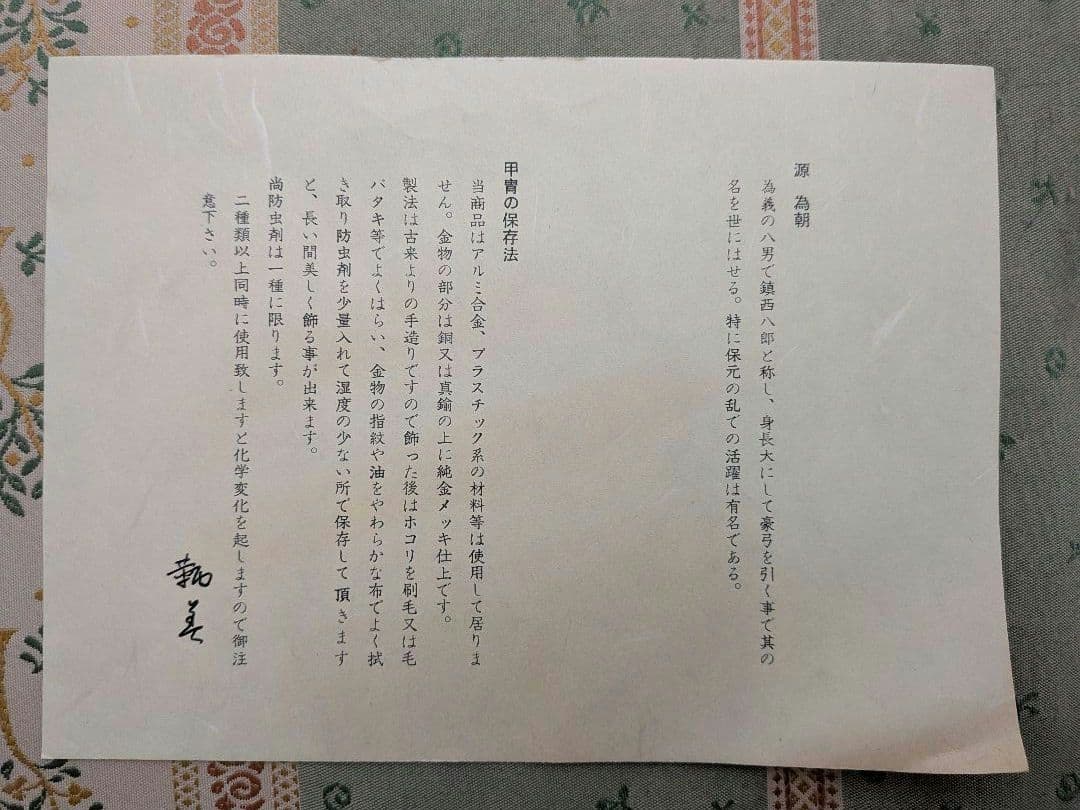 源 為朝
為義の八男で鎮西八郎と称し、身長大にして豪弓を引く事で其の
名を世にはせる。特に保元の乱での活躍は有名である。
甲冑の保存法
当商品はアルミ合金、プラスチック系の材料等は使用して居りま
せん。金物の部分は銅又は真鍮の上に純金メッキ仕上です。
製法は古来よりの手造りですので飾った後はホコリを刷毛又は毛
バタキ等でよくはらい、金物の指紋や油をやわらかな布でよく拭
き取り防虫剤を少量入れて湿度の少ない所で保存して頂きます
と、長い間美しく飾る事が出来ます。
尚防虫剤は一種に限ります。
二種類以上同時に使用致しますと化学変化を起しますので御注
意下さい。